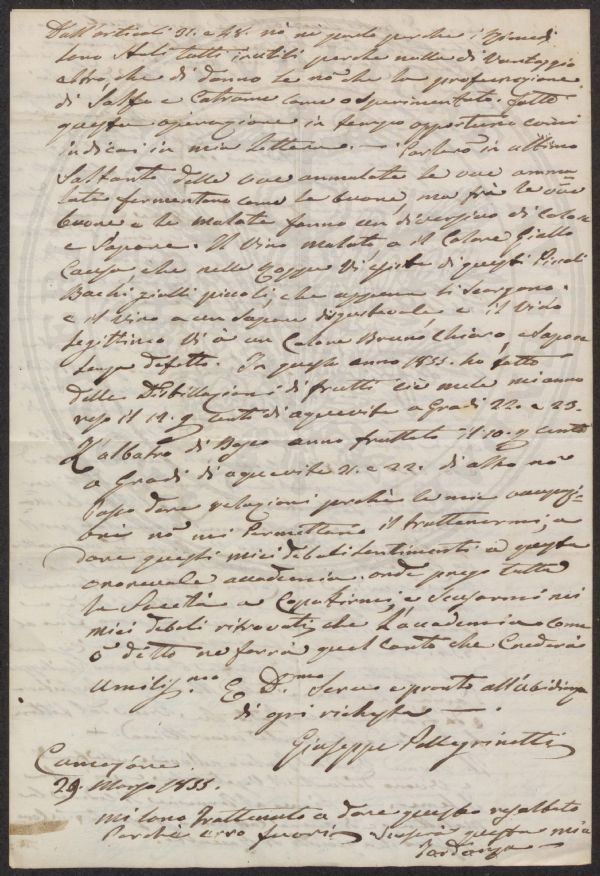 Dall'articoli 31. e 48. nò ne parlo perche i Rimedi
sono stati tutti inutili perche nulla di Vantaggio
altrò che di danno se nò che la profumazione
di Solfo e Catrame come o sperimentato. fatto
questa operazione in tempo opportuno come
indicai in mia lettera. — Parlerò in ultimo
Soltanto delle uve ammalate le uve amma
late fermentano come le buone, ma frà le uve
buone e le malate fanno un diversivo di Colore
e Sapore. Il Vino malato a il Colore Giallo
Causa che nelle Coppe Vi esiste di questi Picoli
Bachi gialli piccoli, che appena si Scorgono.
e il Vino a un Sapore disgustevole, e il Vino
legittimo Vi à un Colore Bruno, Chiaro, e Sapore
Senza difetto. In questo anno 1855. ho fatto
delle Distillazioni di frutti cie mele mi anno
reso il 12. p cento di aquevite a Gradi 22. e 23.
L'albatro di Bosco anno fruttato il 10. p cento
a Gradi di aquevite 21. e 22. di altro nò
posso dare relazioni perchè le mie occupazi-
oni nò mi Permettano il trattenermi, a
dare questi miei deboli Sentimenti a questa
onorevole accademia. onde prego tutta
la Società a Copatirmi, e Scusarmi nei
miei deboli ritrovati, che L'accademia come
ò ditto ne farrà quel conto che Crederà
Umiliss.mo E D.mo Servo e pronto all'ubidienza
di ogni richiesta —
Giuseppe Pellegrinetti
Camajore
29. Marzo 1855.
mi sono trattenuto a dare questo
Perchè ero fuori Scuserà questa mia
Tardanza